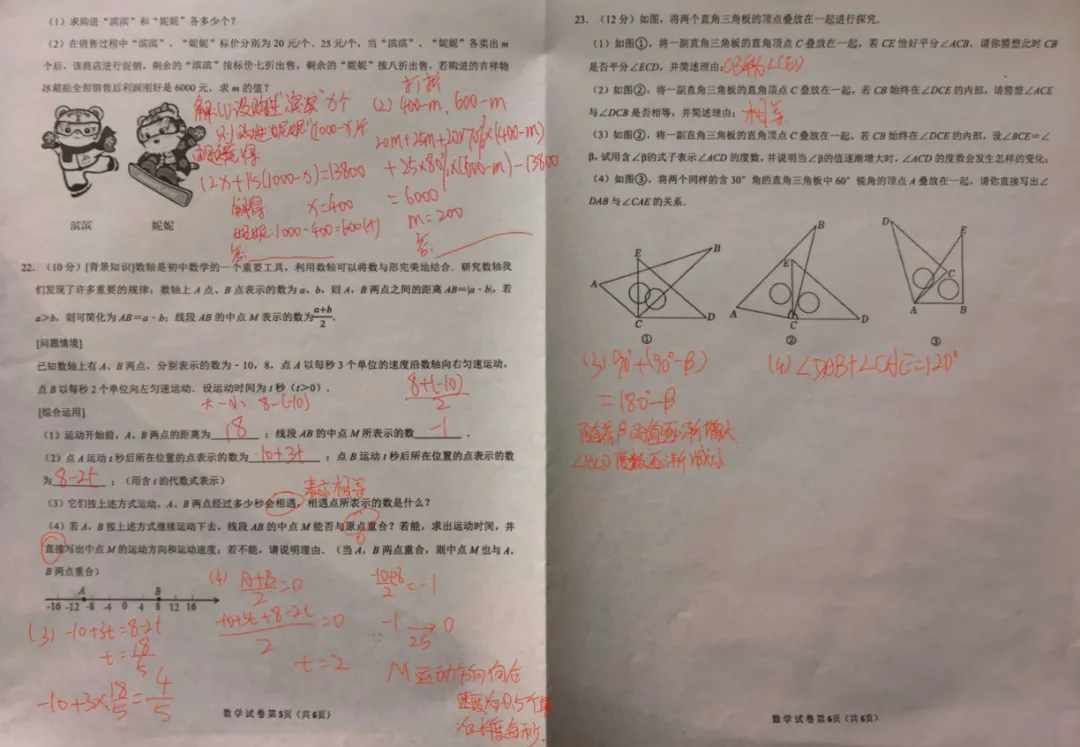 (1) 求购进“滨滨”和“妮妮”各多少个?
(2) 在销售过程中“滨滨”、“妮妮”标价分别为 20 元/个、25 元/个,当“滨滨”、“妮妮”各卖出 m
个后,该商店进行促销,剩余的“滨滨”按标价七折出售,剩余的“妮妮”按八折出售,若购进的吉祥物
冰箱贴全部销售后利润刚好是 6000 元,求 m 的值?
打折
解:(1)设购进“滨滨”x个
则购进“妮妮”(1000-x)个
由题意得
12x+15(1000-x)=13800
解得 x=400
妮妮:1000-400=600(个)
答:
(2) 400-m, 600-m
20m+25m+20×70%×(400-m)
+25×80%×(600-m)-13800
=6000
m=200
答:
滨滨 妮妮
22. (10 分) [背景知识]数轴是初中数学的一个重要工具,利用数轴可以将数与形完美地结合.研究数轴我
们发现了许多重要的规律:数轴上 A 点、B 点表示的数为 a、b,则 A,B 两点之间的距离 AB=|a-b|,若
a>b,则可简化为 AB=a-b;线段 AB 的中点 M 表示的数为 a+b/2.
[问题情境]
已知数轴上有 A、B 两点,分别表示的数为-10,8,点 A 以每秒 3 个单位的速度沿数轴向右匀速运动,
点 B 以每秒 2 个单位向左匀速运动.设运动时间为 t 秒(t>0).
8+(-10)/2
大-小 8-(-10)
[综合运用]
(1) 运动开始前,A、B 两点的距离为 18 ;线段 AB 的中点 M 所表示的数 -1 .
(2) 点 A 运动 t 秒后所在位置的点表示的数为 -10+3t ;点 B 运动 t 秒后所在位置的点表示的数
为 8-2t ;(用含 t 的代数式表示)
表示相等
(3) 它们按上述方式运动,A、B 两点经过多少秒会相遇,相遇点所表示的数是什么?
(4) 若 A,B 按上述方式继续运动下去,线段 AB 的中点 M 能否与原点重合?若能,求出运动时间,并
直接写出中点 M 的运动方向和运动速度;若不能,请说明理由.(当 A,B 两点重合,则中点 M 也与 A,
B 两点重合)
A B
-16 -12 -8 -4 0 4 8 12 16
(3) -10+3t=8-2t
t=18/5
-10+3×18/5=4/5
(4) A+B/2=0
-10+3t+8-2t/2=0
t=2
-10+8/2=-1
-1→0
2s
M运动方向向右
速度为0.5个单
位长度每秒.
数学试卷第 5 页(共 6 页)
23. (12 分)如图,将两个直角三角板的顶点叠放在一起进行探究.
(1) 如图①,将一副直角三角板的直角顶点 C 叠放在一起,若 CE 恰好平分∠ACB,请你猜想此时 CB
是否平分∠ECD,并简述理由; CB平分∠ECD
(2) 如图②,将一副直角三角板的直角顶点 C 叠放在一起,若 CB 始终在∠DCE 的内部,请猜想∠ACE
与∠DCB 是否相等,并简述理由; 相等
(3) 如图②,将一副直角三角板的直角顶点 C 叠放在一起,若 CB 始终在∠DCE 的内部,设∠BCE=∠
β,试用含∠β的式子表示∠ACD 的度数,并说明当∠β的值逐渐增大时,∠ACD 的度数会发生怎样的变化;
(4) 如图③,将两个同样的含 30°角的直角三角板中 60°锐角的顶点 A 叠放在一起,请你直接写出∠
DAB 与∠CAE 的关系.
A E B C D
①
A E B C D
②
D E C A B
③
(3) 90°+(90°-β)
=180°-β
随着β的值逐渐增大
∠ACD度数逐渐减小
(4) ∠DAB+∠CAE=120°
数学试卷第 6 页(共 6 页)